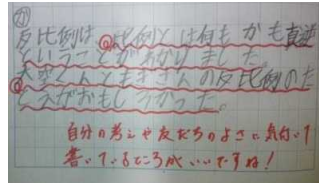 反比例は比例とは何もかも真逆
ということがわかりました。
さんの反比例のた
とえがおもしろかった。
自分の考えや友だちのよさに気付いて
書いているところがいいですね!